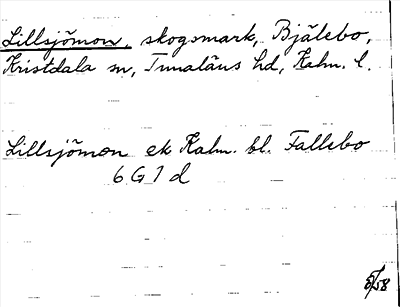 Lillsjömon, skogsmark, Bjälebo,
Kristdala sn, Tunaläns hd, Kalm. l.
Lillsjömon ek Kalm. bl. Fallebo
6 G 1 d
5/58